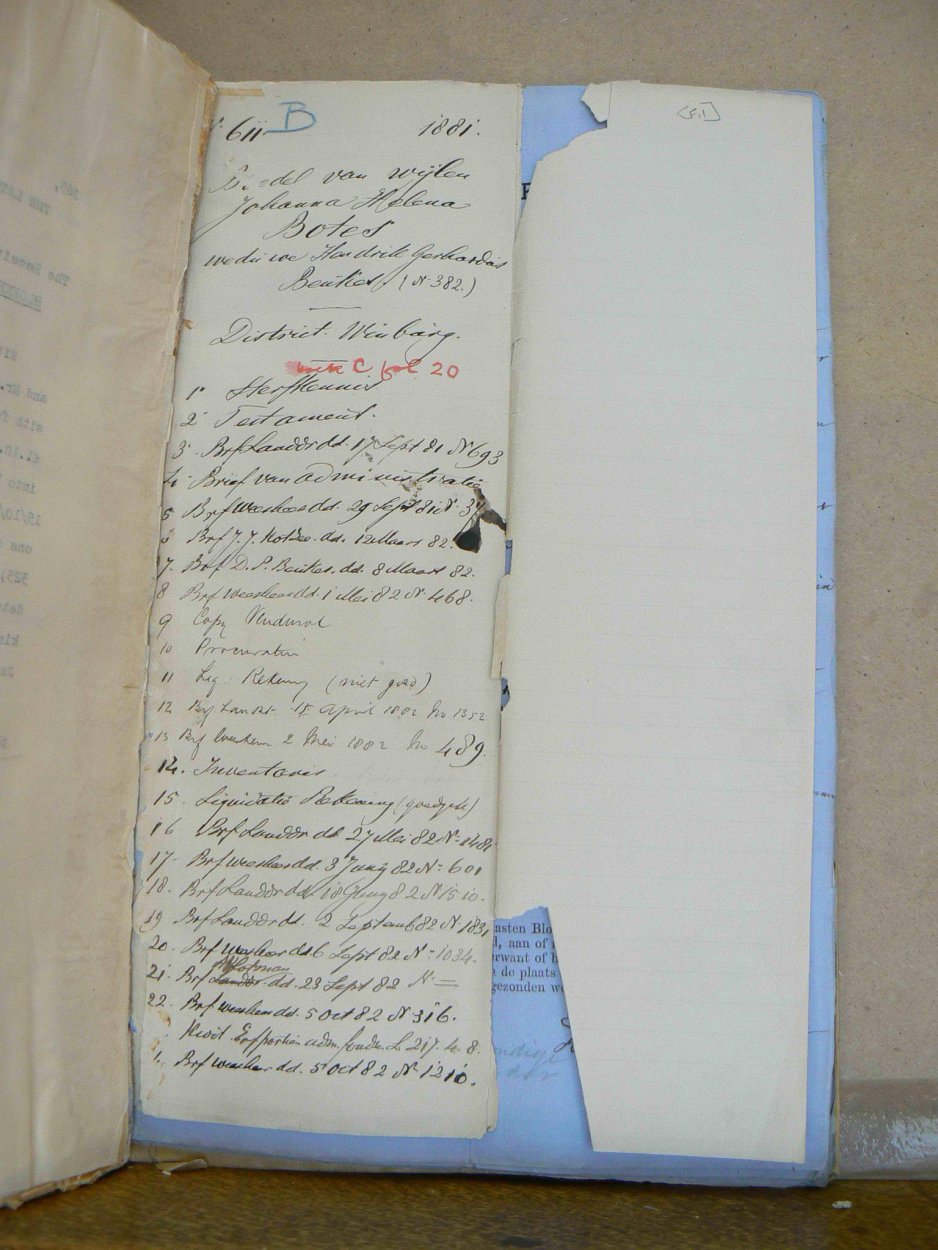 611 B 1881.
Boedel van wijlen
Johanna Helena
Botes
weduwe Hendrik Gerhardus
Beukes (N: 382.)
District. Winburg.
C fol 20
1 Sterfkennis
2 Testament.
3 Brf Landdr dd. 17 Sept 81 N 693
4 Brief van administratie
5 Brf weesheer dd. 29 Sept 81 N
6 Brf J. J. Kotze. dd. 12 Maart 82.
7. Brf D. P. Beukes. dd. 8 Maart 82.
8. Brf weesheer dd. 1 Mei 82 N. 468.
9 Copy Vendurol
10 Procuratie
11 Liq. Rekening (niet goed)
12 Brf Landdr. 15 April 1882 No 1352
13 Brf Weesheer 2 Mei 1882 No 489.
14. Inventaris
15. Liquidatie Rekening (goedgek)
16 Brf Landdr dd 27 Mei 82 N:
17. Brf weesheer dd. 3 Junij 82 N: 601
18. Brf Landdr dd 10 Junij 82 N 1510.
19 Brf Landdr dd. 2 Septemb 82 N 1831
20. Brf weesheer dd 6 Sept 82 N: 1034.
21. Brf dd. 23 Sept 82 N =
22. Brf weesheer dd. 5 Oct 82 N 316.
Kwit. Erfportien adm. fonds. £ 217. 4. 8.
Brf weesheer dd. 5 Oct 82 N. 1210.
[F.1]
asten Blo
l, aan of
rwant of b
de plaats
gezonden w
The Receiv
and Mr.
with
21.10.
into
15/10/
one
325
kin